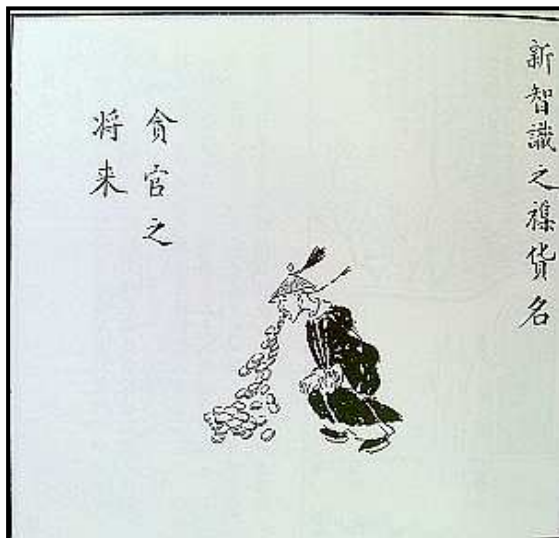 新智識之襍貨名
貪官之
将来